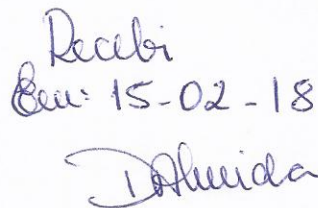 Recebi
Em: 15-02-18
DAlmeida